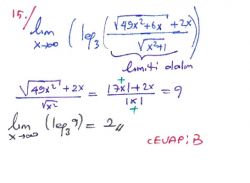 15./ lim x→∞ ( log₃ ( (√(49x²+6x) + 2x) / √(x²+1) ) )
limiti alalım
(√(49x²) + 2x) / √(x²) = (|7x| + 2x) / |x| = 9
+ +
lim x→∞ (log₃ 9) = 2 //
CEVAP: B